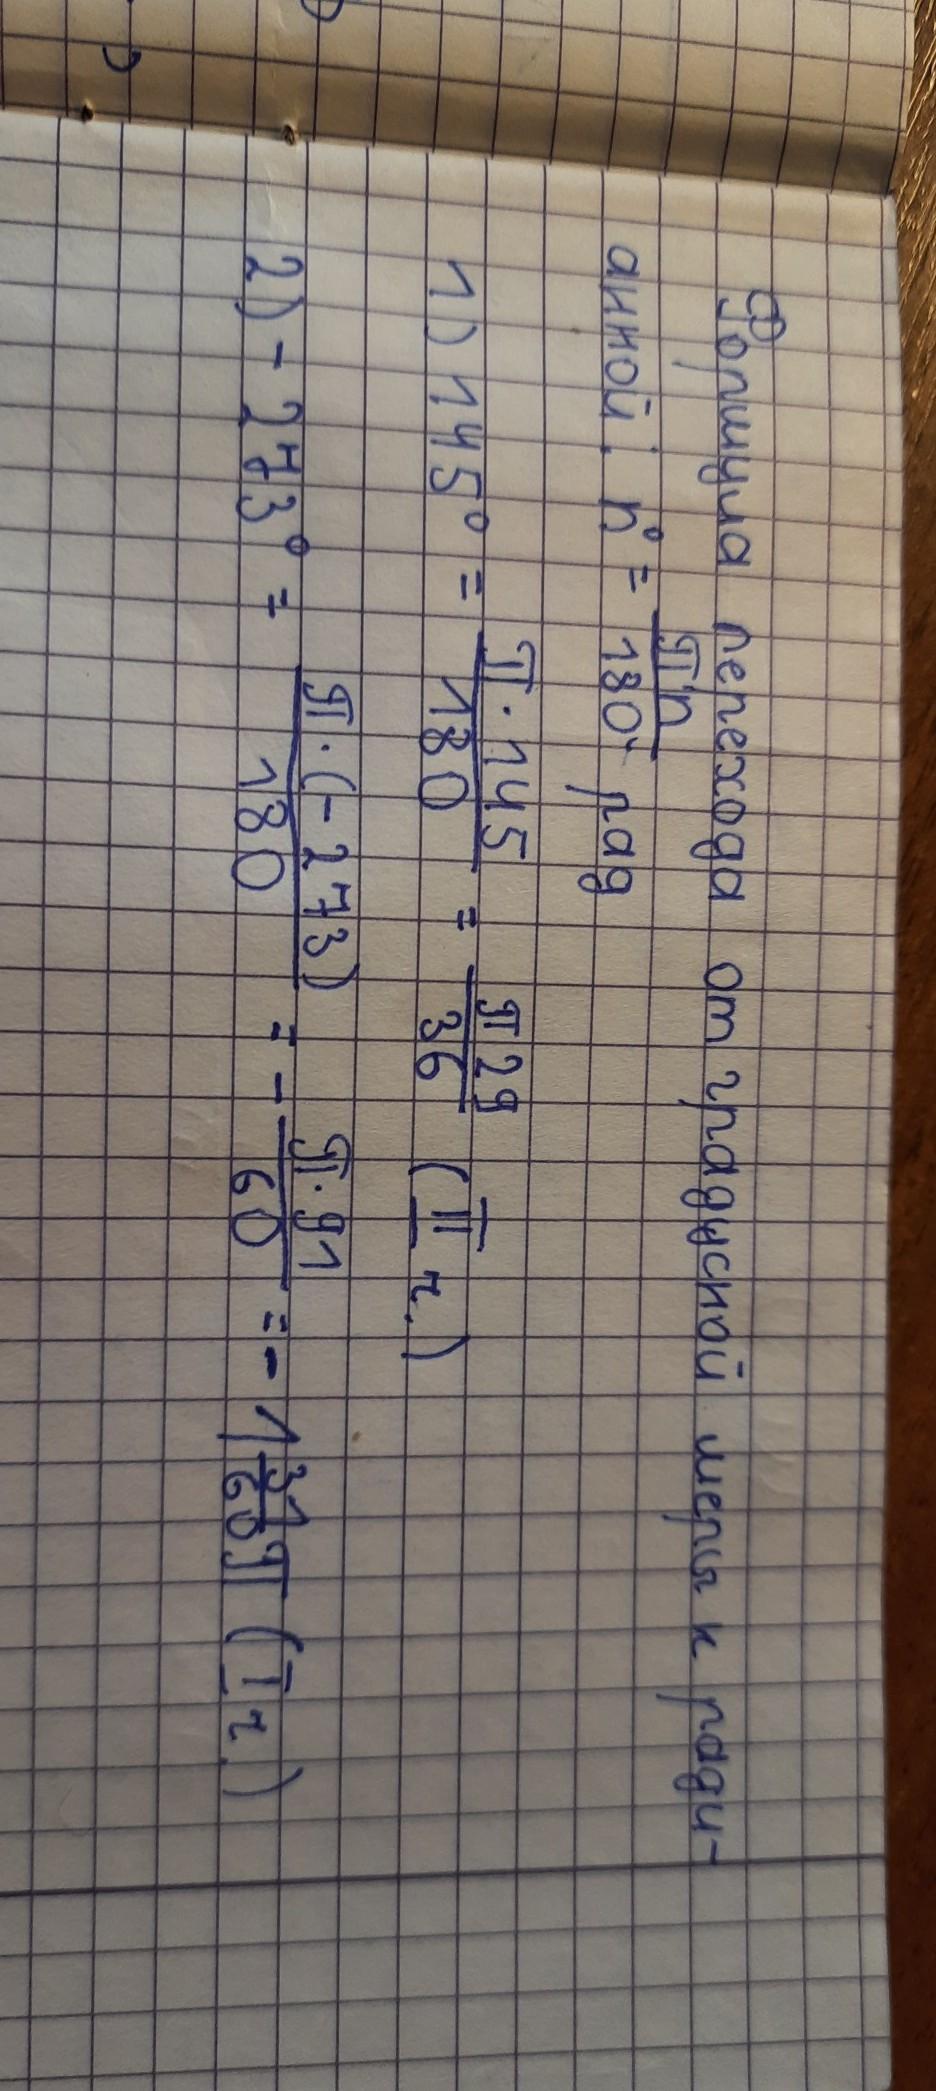 Формула перехода от градусной меры к ради-
анной: n° = πn/180 рад
1) 145° = π·145/180 = π29/36 (II ч.)
2) - 273° = π·(-273)/180 = - π·91/60 = - 1 31/60 π (I ч.)